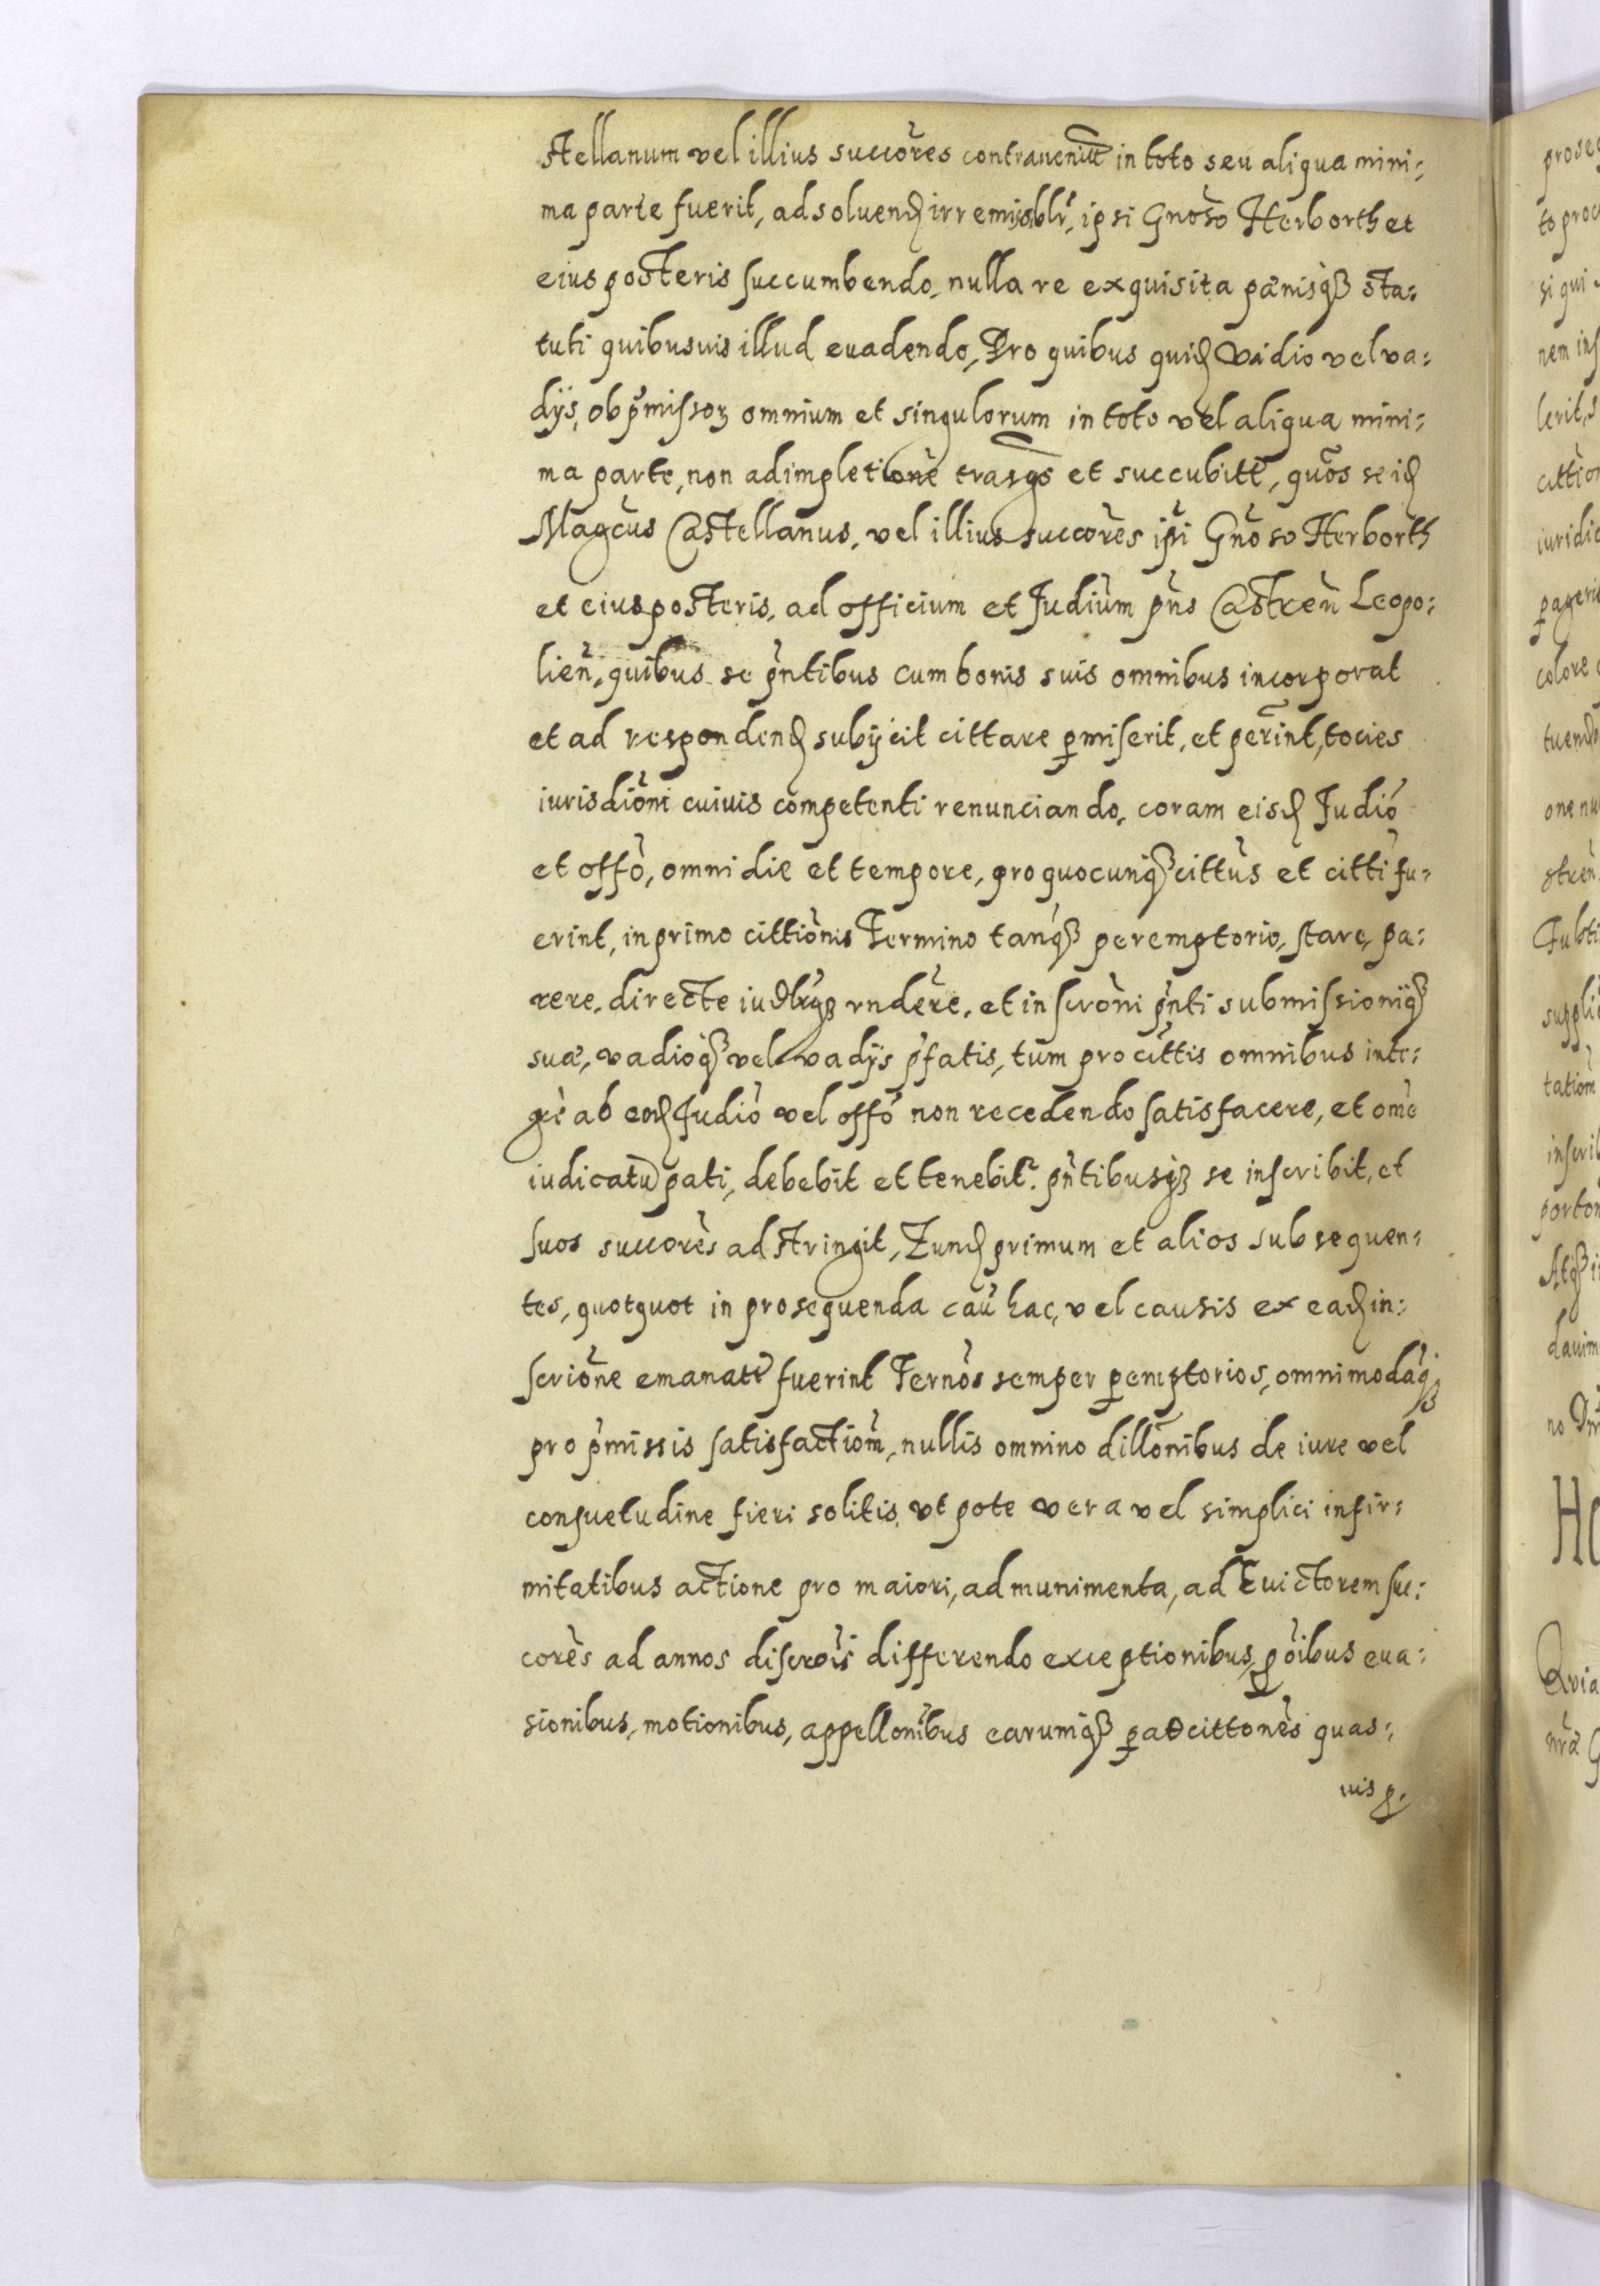 stellanum vel illius succores contrauenitt in toto seu aliqua mini:
ma parte fuerit, ad soluend irremisblr, ipsi Gnoso Herborth et
eius posteris succumbendo, nulla re exquisita pænisq3 sta:
tuti quibusuis illud euadendo, Pro quibus quid Vadio vel va:
dijs, ob pmissor omnium et singulorum in toto vel aliqua mini:
ma parte, non adimpletione trasgs et succubitt, quos se id
Magcus Castellanus, vel illius succores ipi Gnoso Herborth
et eius posteris, ad officium et Judium pns Castren Leopo:
lien, quibus se pntibus cum bonis suis omnibus incorporat
et ad respondend subijcit cittare pmiserit, et perint, tocies
iurisdioni cuiuis competenti renunciando, coram eisd Judio
et offo, omni die et tempore, pro quocunq3 cittus et citti fu:
erint, in primo cittionis Termino tanq3 peremptorio, stare, pa:
rere, directe iudlrq3 rndere, et inscroni pnti submissioniq3
suæ, vadioq3 vel vadijs pfatis, tum pro cittis omnibus inte:
gre ab eod Judio vel offo non recedendo satisfacere, et ome
iudicatu pati, debebit et tenebitr. pntibusq3 se inscribit, et
suos succores adstringit, Tund primum et alios subsequen:
tes, quotquot in prosequenda cau hac, vel causis ex ead in:
scrione emanatt fuerint Ternos semper pemptorios, omnimodaq3
pro pmissis satisfactiom, nullis omnino dillonibus de iure vel
consuetudine fieri solitis, vt pote vera vel simplici infir:
mitatibus actione pro maiori, ad munimenta, ad Euictorem suc:
cores ad annos discrois differendo exceptionibus, poibus eua:
sionibus, motionibus, appellonibus earumq3 cittones quas:
uis p.